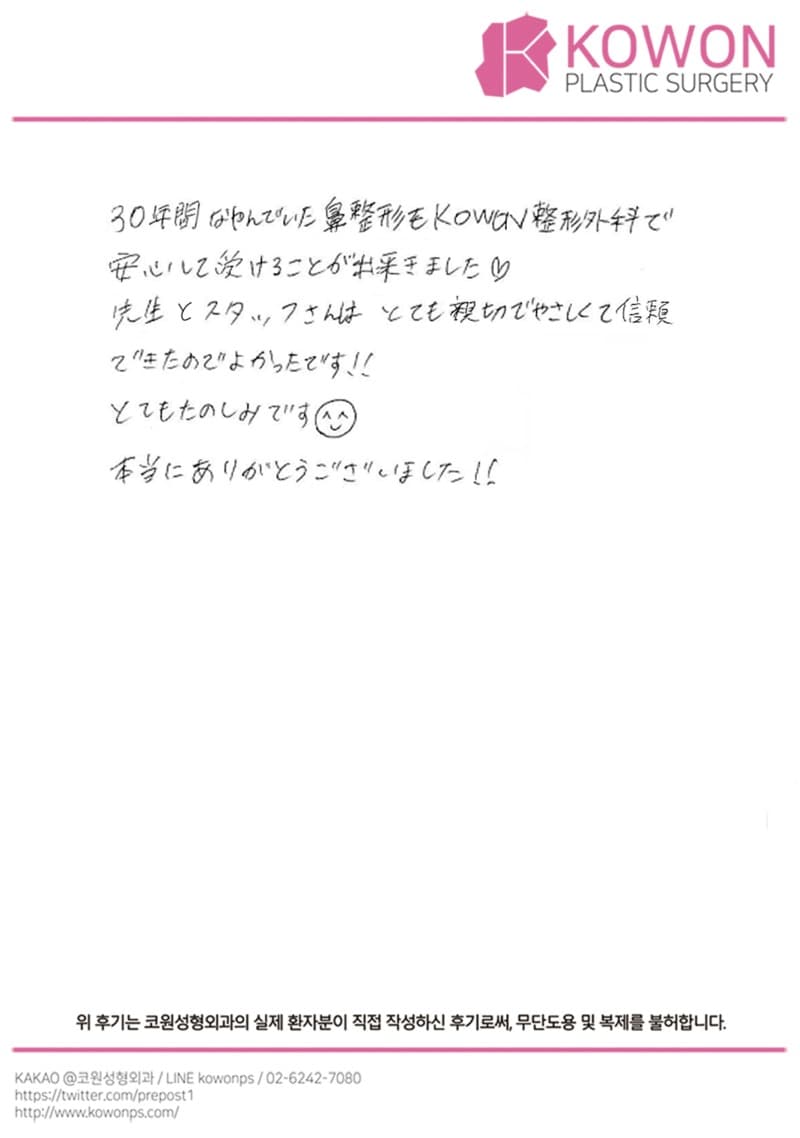 KOWON
PLASTIC SURGERY
30年間なやんでいた鼻整形をKOWON整形外科で
安心して受けることが出来ました♡
先生とスタッフさんは とても親切でやさしくて信頼
できたのでよかったです!!
とてもたのしみです😊
本当にありがとうございました!!
위 후기는 코원성형외과의 실제 환자분이 직접 작성하신 후기로써, 무단도용 및 복제를 불허합니다.
KAKAO @코원성형외과 / LINE kowonps / 02-6242-7080
https://twitter.com/prepost1
http://www.kowonps.com/